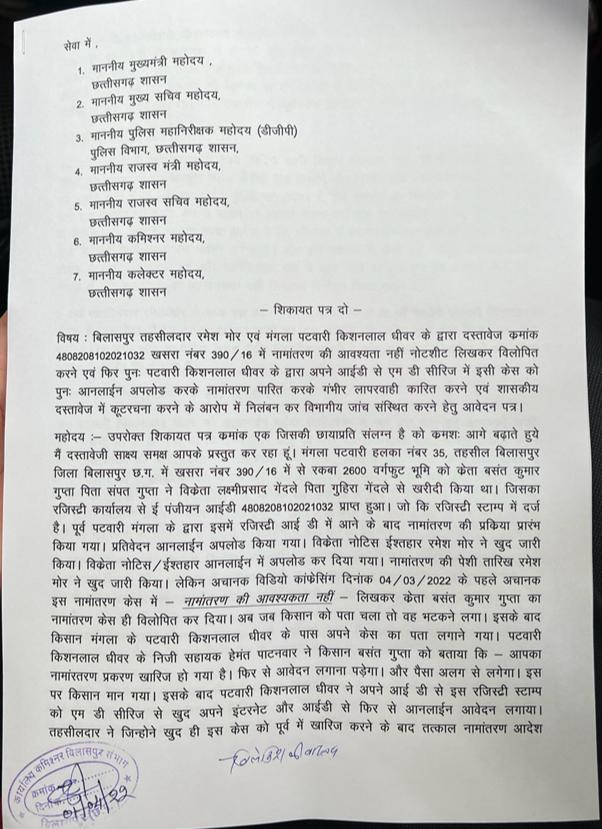 सेवा में ,
1. माननीय मुख्यमंत्री महोदय ,
छत्तीसगढ़ शासन
2. माननीय मुख्य सचिव महोदय,
छत्तीसगढ़ शासन
3. माननीय पुलिस महानिरीक्षक महोदय (डीजीपी)
पुलिस विभाग, छत्तीसगढ़ शासन,
4. माननीय राजस्व मंत्री महोदय,
छत्तीसगढ़ शासन
5. माननीय राजस्व सचिव महोदय,
छत्तीसगढ़ शासन
6. माननीय कमिश्नर महोदय,
छत्तीसगढ़ शासन
7. माननीय कलेक्टर महोदय,
छत्तीसगढ़ शासन
– शिकायत पत्र दो –
विषय : बिलासपुर तहसीलदार रमेश मोर एवं मंगला पटवारी किशनलाल धीवर के द्वारा दस्तावेज कमांक
4808208102021032 खसरा नंबर 390/16 में नामांतरण की आवश्यता नहीं नोटशीट लिखकर विलोपित
करने एवं फिर पुनः पटवारी किशनलाल धीवर के द्वारा अपने आईडी से एम डी सीरिज में इसी केस को
पुनः आनलाईन अपलोड करके नामांतरण पारित करके गंभीर लापरवाही कारित करने एवं शासकीय
दस्तावेज में कूटरचना करने के आरोप में निलंबन कर विभागीय जांच संस्थित करने हेतु आवेदन पत्र।
महोदय :– उपरोक्त शिकायत पत्र कमांक एक जिसकी छायाप्रति संलग्न है को कमशः आगे बढ़ाते हुये
मैं दस्तावेजी साक्ष्य समक्ष आपके प्रस्तुत कर रहा हूं। मंगला पटवारी हलका नंबर 35, तहसील बिलासपुर
जिला बिलासपुर छ.ग. में खसरा नंबर 390/16 में से रकबा 2600 वर्गफुट भूमि को केता बसंत कुमार
गुप्ता पिता संपत गुप्ता ने विकेता लक्ष्मीप्रसाद गेंदले पिता गुहिरा गेंदले से खरीदी किया था। जिसका
रजिस्ट्री कार्यालय से ई पंजीयन आईडी 4808208102021032 प्राप्त हुआ। जो कि रजिस्ट्री स्टाम्प में दर्ज
है। पूर्व पटवारी मंगला के द्वारा इसमें रजिस्ट्री आई डी में आने के बाद नामांतरण की प्रकिया प्रारंभ
किया गया। प्रतिवेदन आनलाईन अपलोड किया गया। विकेता नोटिस ईश्तहार रमेश मोर ने खुद जारी
किया। विकेता नोटिस/ईश्तहार आनलाईन में अपलोड कर दिया गया। नामांतरण की पेशी तारिख रमेश
मोर ने खुद जारी किया। लेकिन अचानक विडियो कांफ्रेसिंग दिनांक 04/03/2022 के पहले अचानक
इस नामांतरण केस में – नामांतरण की आवश्यकता नहीं – लिखकर केता बसंत कुमार गुप्ता का
नामांतरण केस ही विलोपित कर दिया। अब जब किसान को पता चला तो वह भटकने लगा। इसके बाद
किसान मंगला के पटवारी किशनलाल धीवर के पास अपने केस का पता लगाने गया। पटवारी
किशनलाल धीवर के निजी सहायक हेमंत पाटनवार ने किसान बसंत गुप्ता को बताया कि – आपका
नामांरतरण प्रकरण खारिज हो गया है। फिर से आवेदन लगाना पड़ेगा। और पैसा अलग से लगेगा। इस
पर किसान मान गया। इसके बाद पटवारी किशनलाल धीवर ने अपने आई डी से इस रजिस्ट्री स्टाम्प
को एम डी सीरिज से खुद अपने इंटरनेट और आईडी से फिर से आनलाईन आवेदन लगाया।
तहसीलदार ने जिन्होने खुद ही इस केस को पूर्व में खारिज करने के बाद तत्काल नामांतरण आदेश
कार्यालय कमिश्नर बिलासपुर संभाग
कमांक
दिनांक